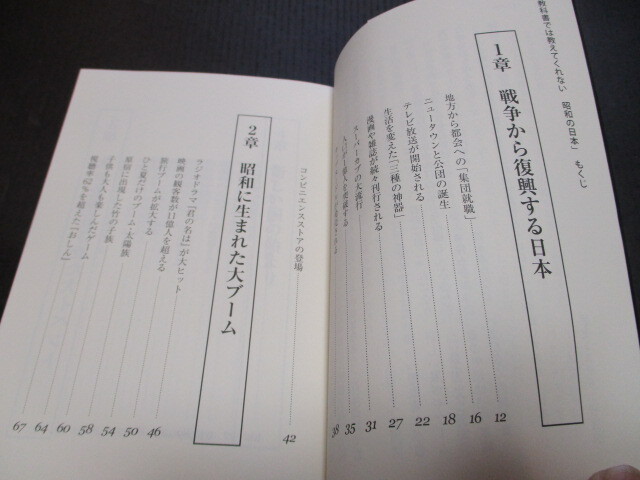 教科書では教えてくれない 昭和の日本」 もくじ
1章 戦争から復興する日本
地方から都会への「集団就職」 12
ニュータウンと公団の誕生 16
テレビ放送が開始される 18
生活を変えた「三種の神器」 22
漫画や雑誌が続々刊行される 27
スーパーカブの大流行 31
35
38
コンビニエンスストアの登場 42
2章 昭和に生まれた大ブーム
ラジオドラマ『君の名は』が大ヒット 46
映画の観客数が11億人を超える 50
旅行ブームが拡大する 54
ひと夏だけのブーム・太陽族 58
原宿に出現した竹の子族 60
子供も大人も楽しんだゲーム 64
視聴率62%を超えた『おしん』 67